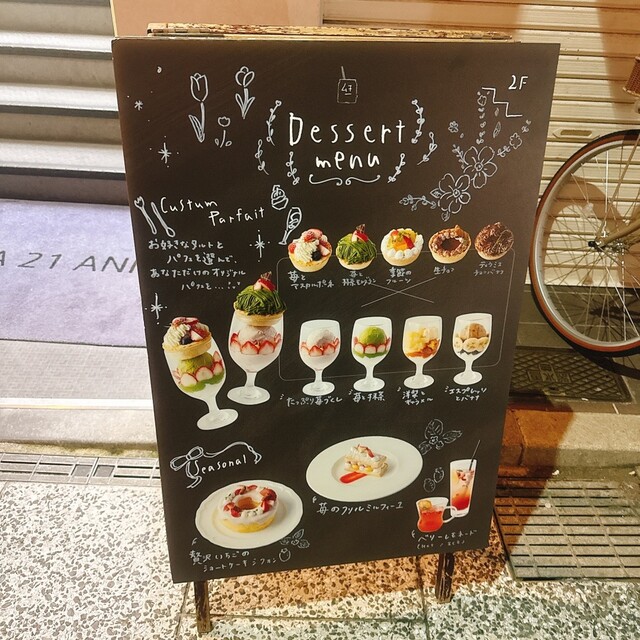 2F
Dessert
menu
Custum
Parfait
お好きなタルトと
パフェを選んで、
あなただけのオリジナル
パフェを…
苺と
マスカルポーネ
苺と
季節の
フルーツ
生チョコ
たっぷり苺づくし
苺と抹茶
洋梨と
キャラメル
エスプレッソ
とバナナ
Seasonal
苺のフリルミルフィーユ
贅沢いちごの
ショートケーキシフォン
ベリーレモネード
A 21 AN